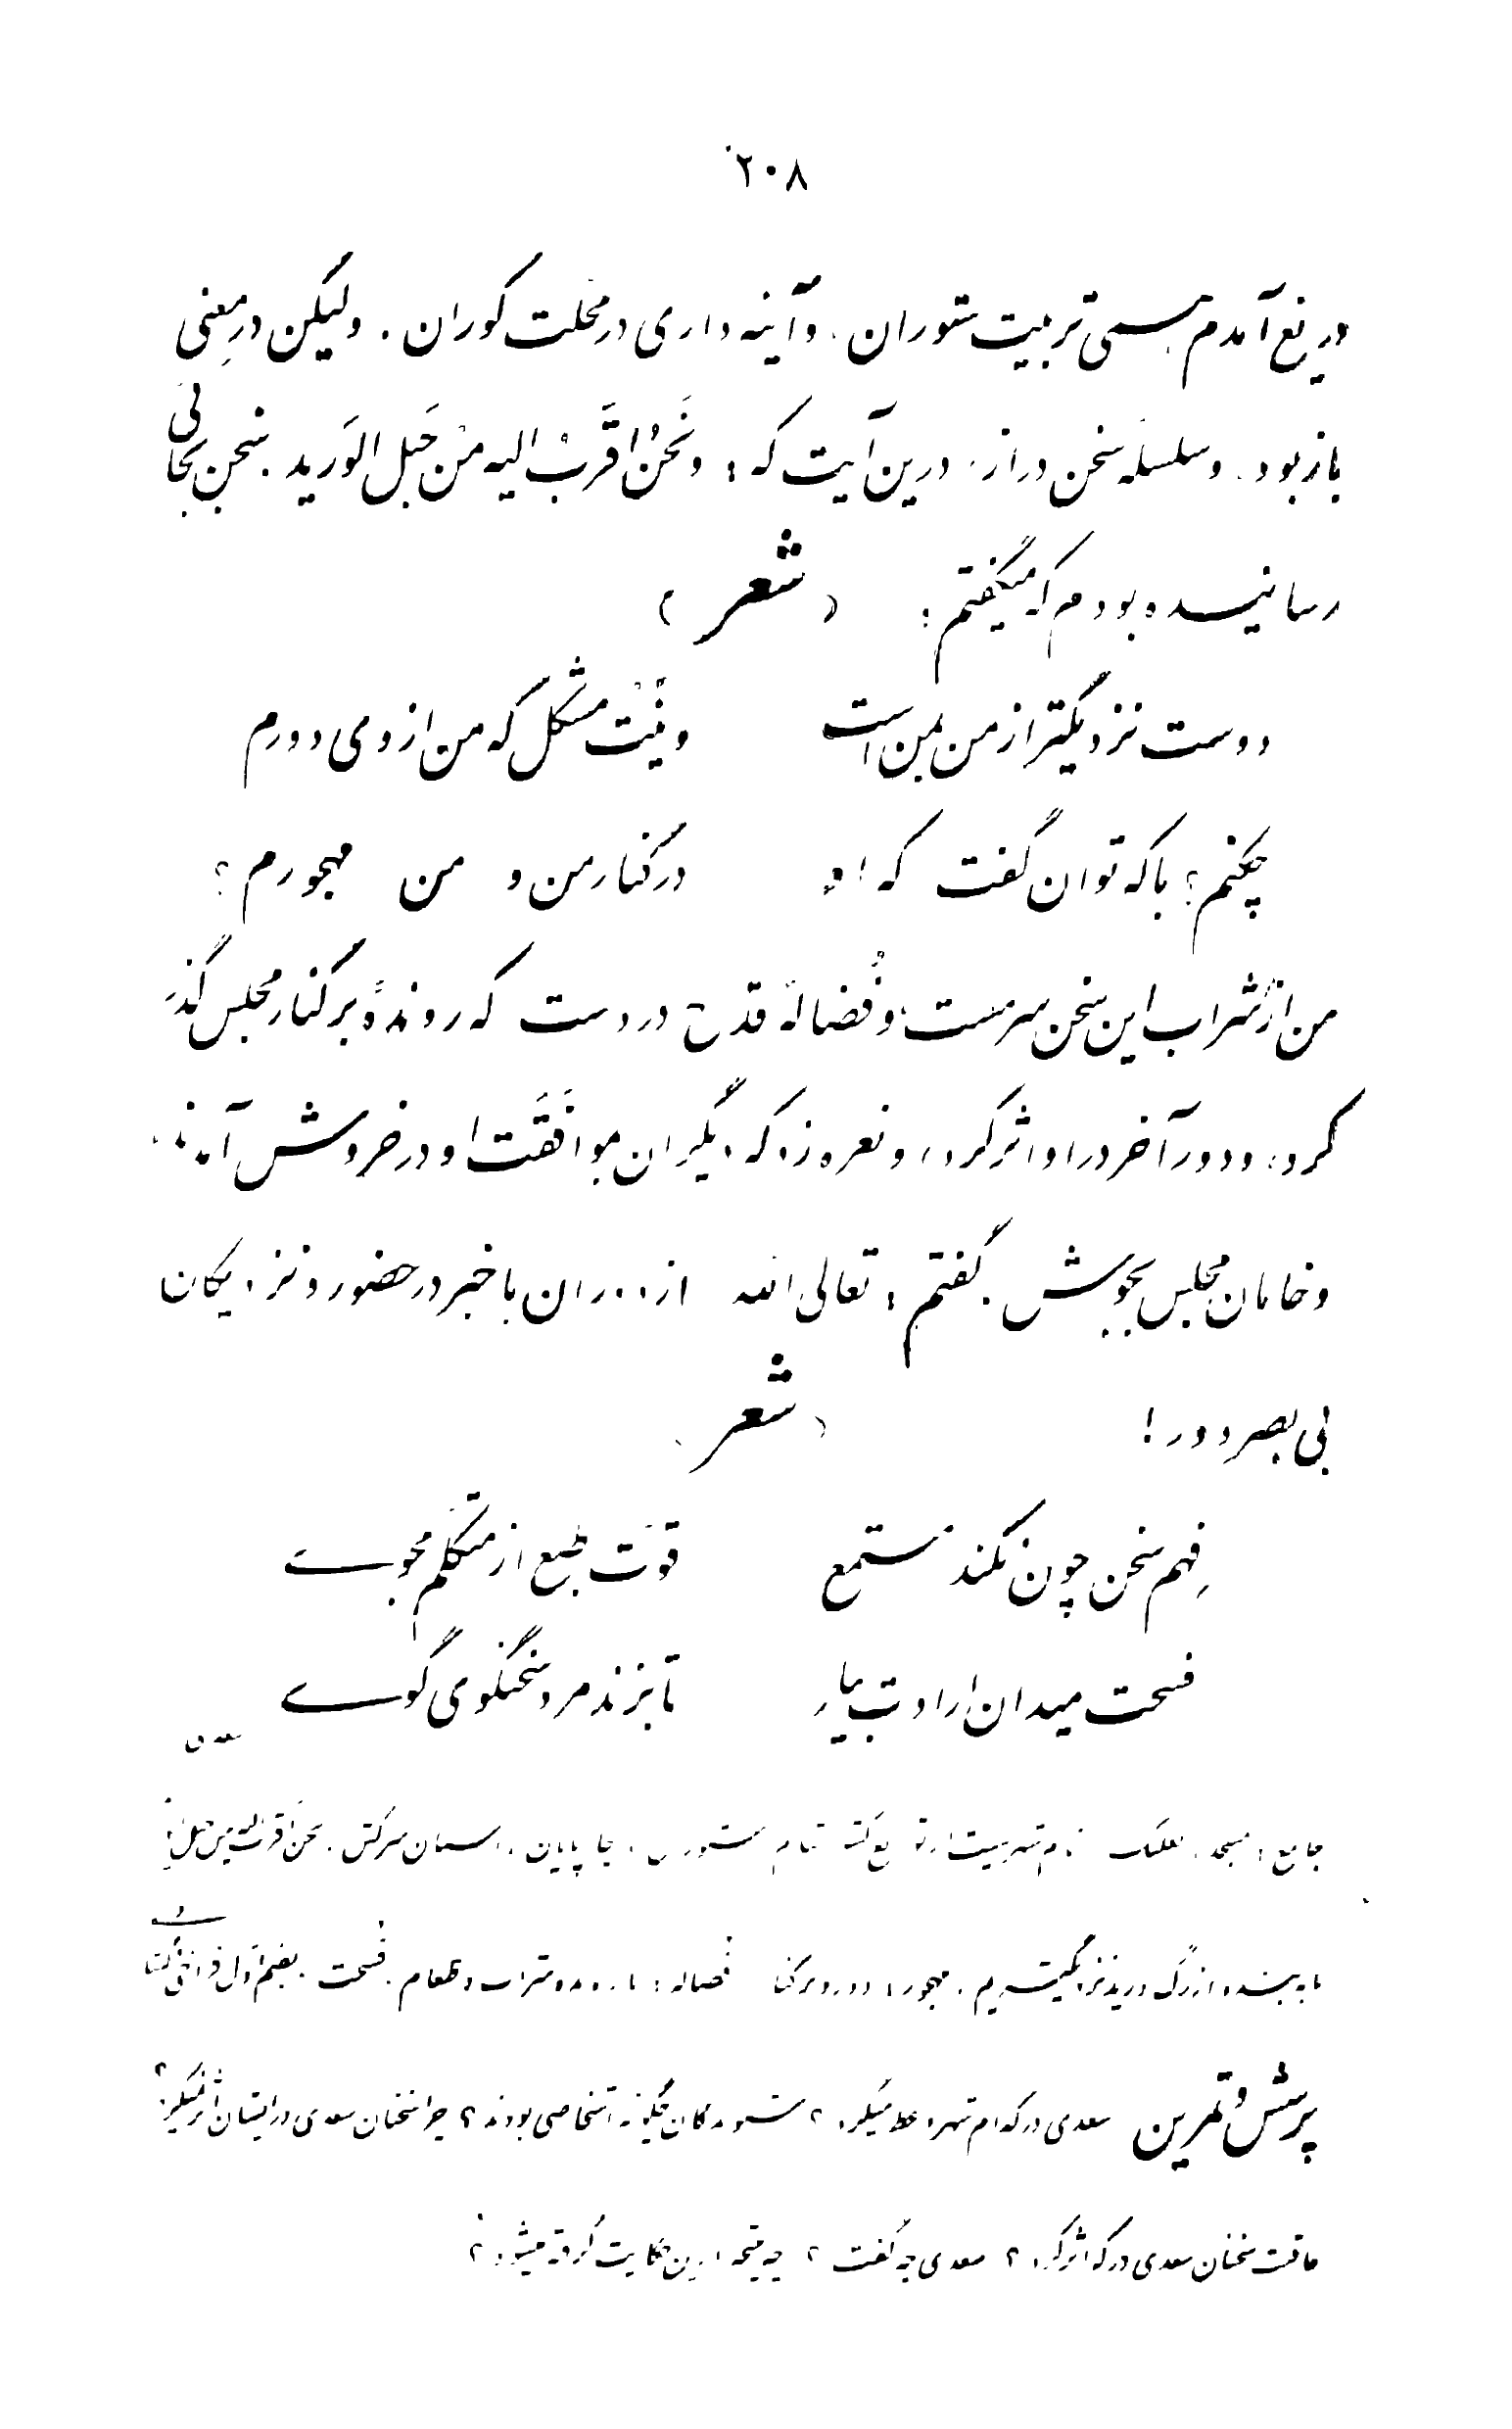 ۲۰۸
دریغ آمدم تربیت ستوران. و آینه داری در محلت کوران. ولیکن در معنی
باز بود. و سلسله سخن دراز. درین آیت که: وَنَحْنُ اَقْرَبُ الیه مِنْ حَبلِ الوَرید. سخن بجائی
رسانیده بودم که میگفتم: (شعر)
دوست نزدیکتر از من بمن است وینت مشکل که من از وی دورم
چکنم؟ با که توان گفت که او در کنار من و من مهجورم؟
من از شراب این سخن سرمست، و فُضالهٔ قدح در دست که روندهٔ بر کنار مجلس گذر
کرد، و دور آخر در او اثر کرد، و نعره زد که دیگران بموافَقَت او در خروش آمدند،
و خامان مجلس بجوش. گفتم: تعالی الله از دوران باخبر در حضور و نزدیکان
بی بصر دور! (شعر)
فهم سخن چون نکند مستمع قوّت طبع از متکلّم مجوی
فسحت میدان ارادت بیار تا بزند مرد سخنگوی گوی
سعدی
جامع: مسجد. ستوران: چارپایان.
از رگ ورید نزدیکتریم. مهجور: دور و برکنار فُضاله: شراب و طعام. فُسحت. بضم اوّل
پرسش و تمرین سعدی در کدام شهر وعظ میکرد؟ شنوندگان چگونه اشخاصی بودند؟ چرا سخنان سعدی در ایشان اثر نمیکرد؟
عاقبت سخنان سعدی در که اثر کرد؟ سعدی چه گفت؟ چه نتیجه ازین حکایت گرفته میشود؟